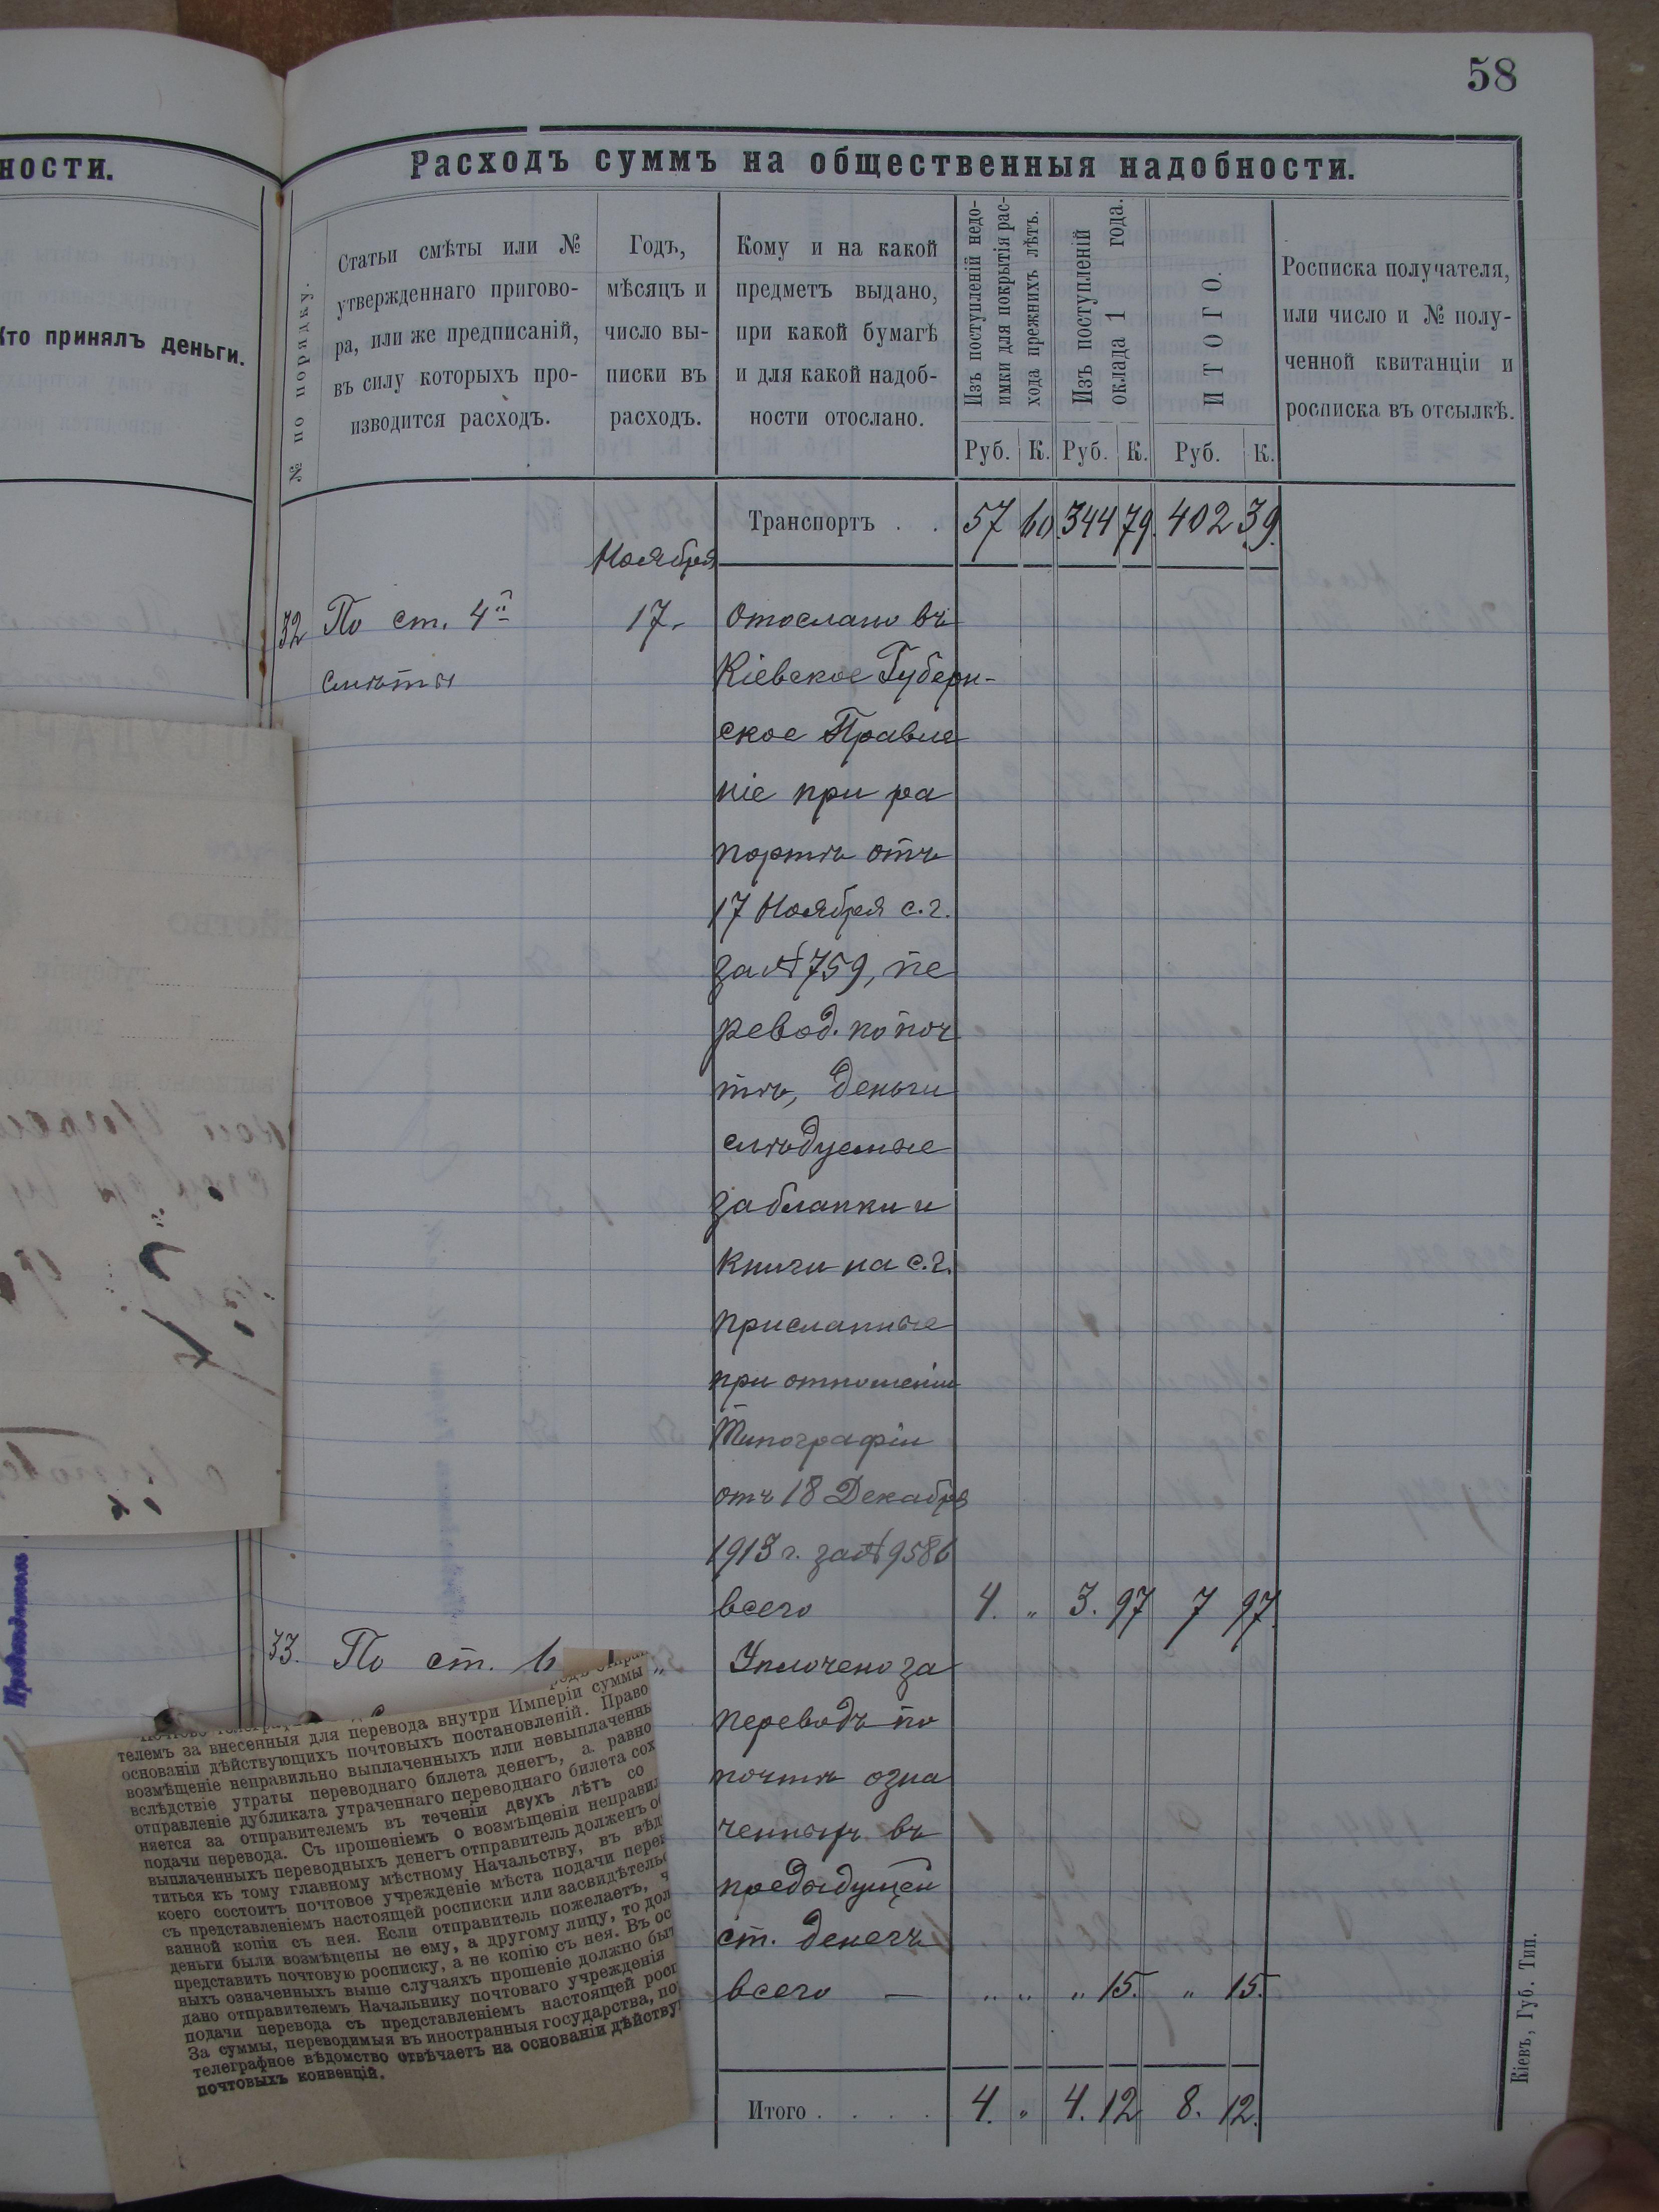 58
ности.
Кто принялъ деньги.
Расходъ суммъ на общественныя надобности.
№ по порядку.
Статьи смѣты или №
утвержденнаго пригово-
ра, или же предписаній,
въ силу которыхъ про-
изводится расходъ.
Годъ,
мѣсяцъ и
число вы-
писки въ
расходъ.
Кому и на какой
предметъ выдано,
при какой бумагѣ
и для какой надоб-
ности отослано.
Изъ поступленій недо-
имки для покрытія рас-
хода прежнихъ лѣтъ.
Изъ поступленій
оклада 1 года.
ИТОГО.
Росписка получателя,
или число и № полу-
ченной квитанціи и
росписка въ отсылкѣ.
Руб. К. Руб. К. Руб. К.
Транспортъ . . 57 60 344 79 402 39
Ноября
32 По ст. 4й 17. Отослано въ
смѣты Кіевское Губерн-
ское Правле
ніе при ра
портѣ отъ
17 Ноября с.г.
за № 759, пе
ревод. по поч
тѣ, деньги
слѣдуемые
за бланки и
книги на с.г.
присланные
при отношеніи
Типографіи
отъ 18 Декабря
1913 г. за № 9586
всего 4. „ 3. 97 7 97.
33. По ст. 6 „ Уплочено за
переводъ по
почтѣ озна
ченныхъ въ
предыдущей
ст. денегъ
всего — „ „ „ 15. „ 15.
Итого . . . . 4. „ 4. 12 8. 12.
телемъ за внесенныя для перевода внутри Имперіи суммы
основаніи дѣйствующихъ почтовыхъ постановленій. Право
возмѣщеніе неправильно выплаченныхъ или невыплаченны
вслѣдствіе утраты переводнаго билета денегъ, а равно
отправленіе дубликата утраченнаго переводнаго билета сох
няется за отправителемъ въ теченіи двухъ лѣтъ со
подачи перевода. Съ прошеніемъ о возмѣщеніи неправил
выплаченныхъ переводныхъ денегъ отправитель долженъ об
титься къ тому главному мѣстному Начальству, въ вѣд
коего состоитъ почтовое учрежденіе мѣста подачи перев
съ представленіемъ настоящей росписки или засвидѣтельс
ванной копіи съ нея. Если отправитель пожелаетъ, ч
деньги были возмѣщены не ему, а другому лицу, то дол
представить почтовую росписку, а не копію съ нея. Въ ос
ныхъ означенныхъ выше случаяхъ прошеніе должно быт
дано отправителемъ Начальнику почтоваго учрежденія
подачи перевода съ представленіемъ настоящей росп
За суммы, переводимыя въ иностранныя государства, по
телеграфное вѣдомство отвѣчаетъ на основаніи дѣйству
почтовыхъ конвенцій.
Кіевъ, Губ. Тип.